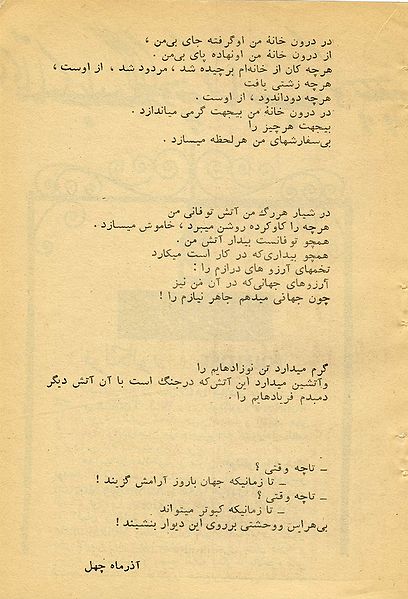 در درون خانهٔ من اوگرفته جای بی‌من ،
از درون خانهٔ من اونهاده پای بی‌من .
هرچه کان از خانه‌ام برچیده شد ، مردود شد ، از اوست ،
هرچه زشتی یافت
هرچه دوداندود ، از اوست .
در درون خانهٔ من بیجهت گرمی میاندازد .
بیجهت هرچیز را
بی‌سفارشهای من هرلحظه میسازد .
در شیار هررگ من آتش توفانی من
هرچه را کاوکرده روشن میبرد ، خاموش میسازد .
همچو توفانست بیدار آتش من .
همچو بیداری‌که در کار است میکارد
تخمهای آرزو های درازم را :
آرزوهای جهانی‌که در آن من نیز
چون جهانی میدهم جاهر نیازم را !
گرم میدارد تن نوزادهایم را
وآتشین میدارد این آتش‌که درجنگ است با آن آتش دیگر
دمبدم فریادهایم را .
ـ تاچه وقتی ؟
ـ تا زمانیکه جهان باروز آرامش گزیند !
ـ تاچه وقتی ؟
ـ تا زمانیکه کبوتر میتواند
بی‌هراس ووحشتی برروی این دیوار بنشیند !
آذرماه چهل